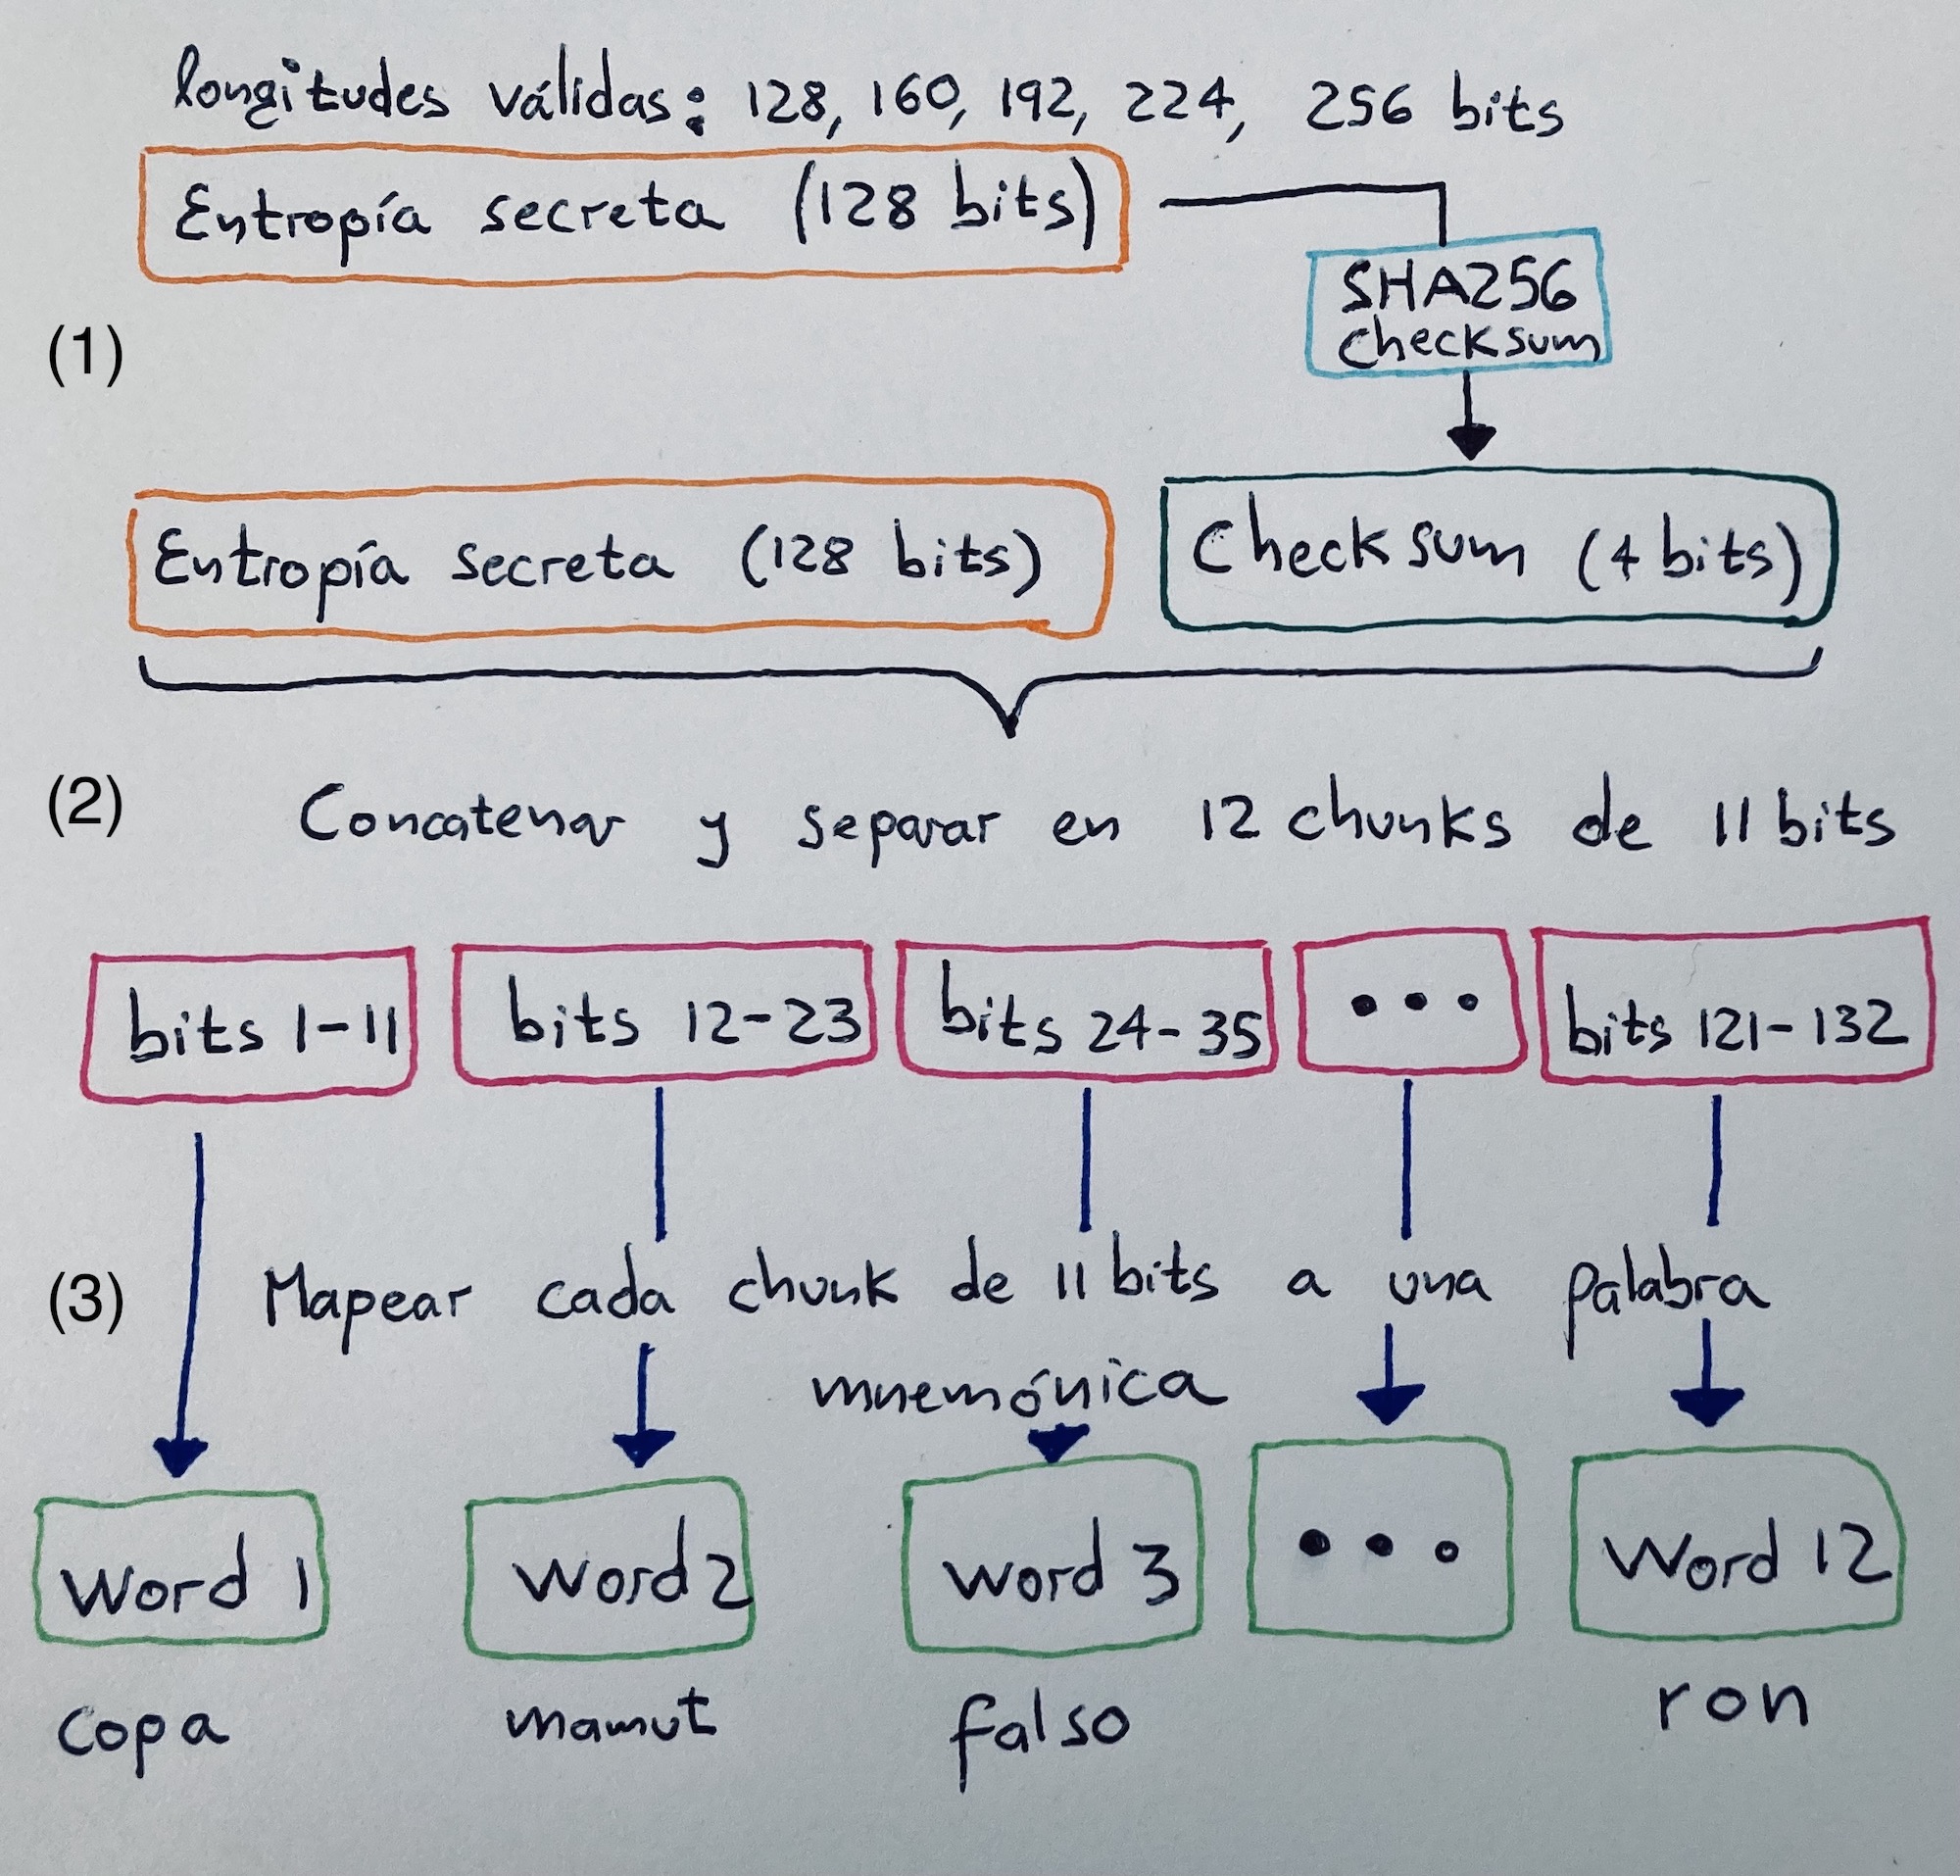 longitudes válidas: 128, 160, 192, 224, 256 bits
Entropía secreta (128 bits)
SHA256
checksum
(1)
Entropía secreta (128 bits)
Checksum (4 bits)
(2)
Concatenar y separar en 12 chunks de 11 bits
bits 1-11
bits 12-23
bits 24-35
•••
bits 121-132
(3)
Mapear cada chunk de 11 bits a una palabra
mnemónica
Word 1
Word 2
word 3
•••
Word 12
copa
mamut
falso
ron